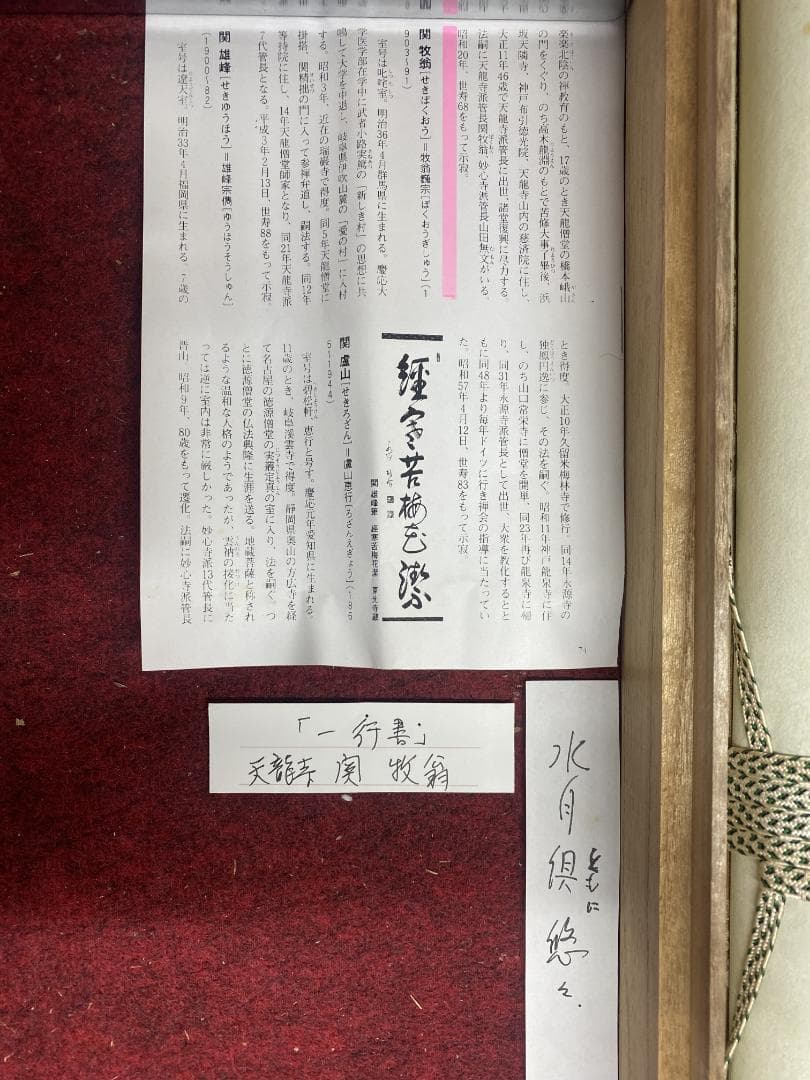 楽北陰の禅教育のもと、17歳のとき天龍僧堂の橋本峨山
の門をくぐり、のち高木龍淵のもとで苦修大事了畢後、浜
坂天隣寺、神戸布引徳光院、天龍寺山内の慈済院に住し、
大正11年46歳で天龍寺派管長に出世、諸堂復興に尽力する。
法嗣に天龍寺派管長関牧翁、妙心寺派管長山田無文がいる。
昭和20年、世寿68をもって示寂。
関 牧翁[せきぼくおう]=牧翁巍宗[ぼくおうぎしゅう](1
903~91)
室号は叱咤室。明治36年4月群馬県に生まれる。慶応大
学医学部在学中に武者小路実篤の「新しき村」の思想に共
鳴して大学を中退し、岐阜県伊吹山麓の「愛の村」に入村
する。昭和3年、近在の瑞巌寺で得度。同5年天龍僧堂に
掛搭、関精拙の門に入って参禅弁道し、嗣法する。同12年
等持院に住し、14年天龍僧堂師家となり、同21年天龍寺派
7代管長となる。平成3年2月13日、世寿88をもって示寂。
関 雄峰[せきゆうほう]=雄峰宗儁[ゆうほうそうしゅん]
(1900~82)
室号は遼天室。明治33年4月福岡県に生まれる。7歳の
とき得度。大正10年久留米梅林寺で修行、同14年永源寺の
独鳳円逸に参じ、その法を嗣ぐ。昭和11年神戸龍泉寺に住
し、のち山口常栄寺に僧堂を開単、同23年再び龍泉寺に帰
り、同31年永源寺派管長として出世、大衆を教化するとと
もに同48年より毎年ドイツに行き禅会の指導に当たってい
た。昭和57年4月12日、世寿83をもって示寂。
經寒苦梅花潔
関 雄峰筆 経寒苦梅花潔
関 盧山[せきろざん]=盧山恵行[ろざんえぎょう](186
5~1944)
室号は碧松軒、恵行と号す。慶応元年愛知県に生まれる。
11歳のとき、岐阜渓雲寺で得度。静岡県奥山の方広寺を経
て名古屋の徳源僧堂の実叢定真の室に入り、法を嗣ぐ。つ
とに徳源僧堂の仏法興隆に生涯を送る。地蔵菩薩と称され
るような温和な人格のようであったが、雲衲の接化に当た
っては逆に室内は非常に厳しかった。妙心寺派13代管長に
晋山 昭和9年、80歳をもって遷化。法嗣に妙心寺派管長
71
「一行書」
天龍寺 関 牧翁
水月倶ともに悠々